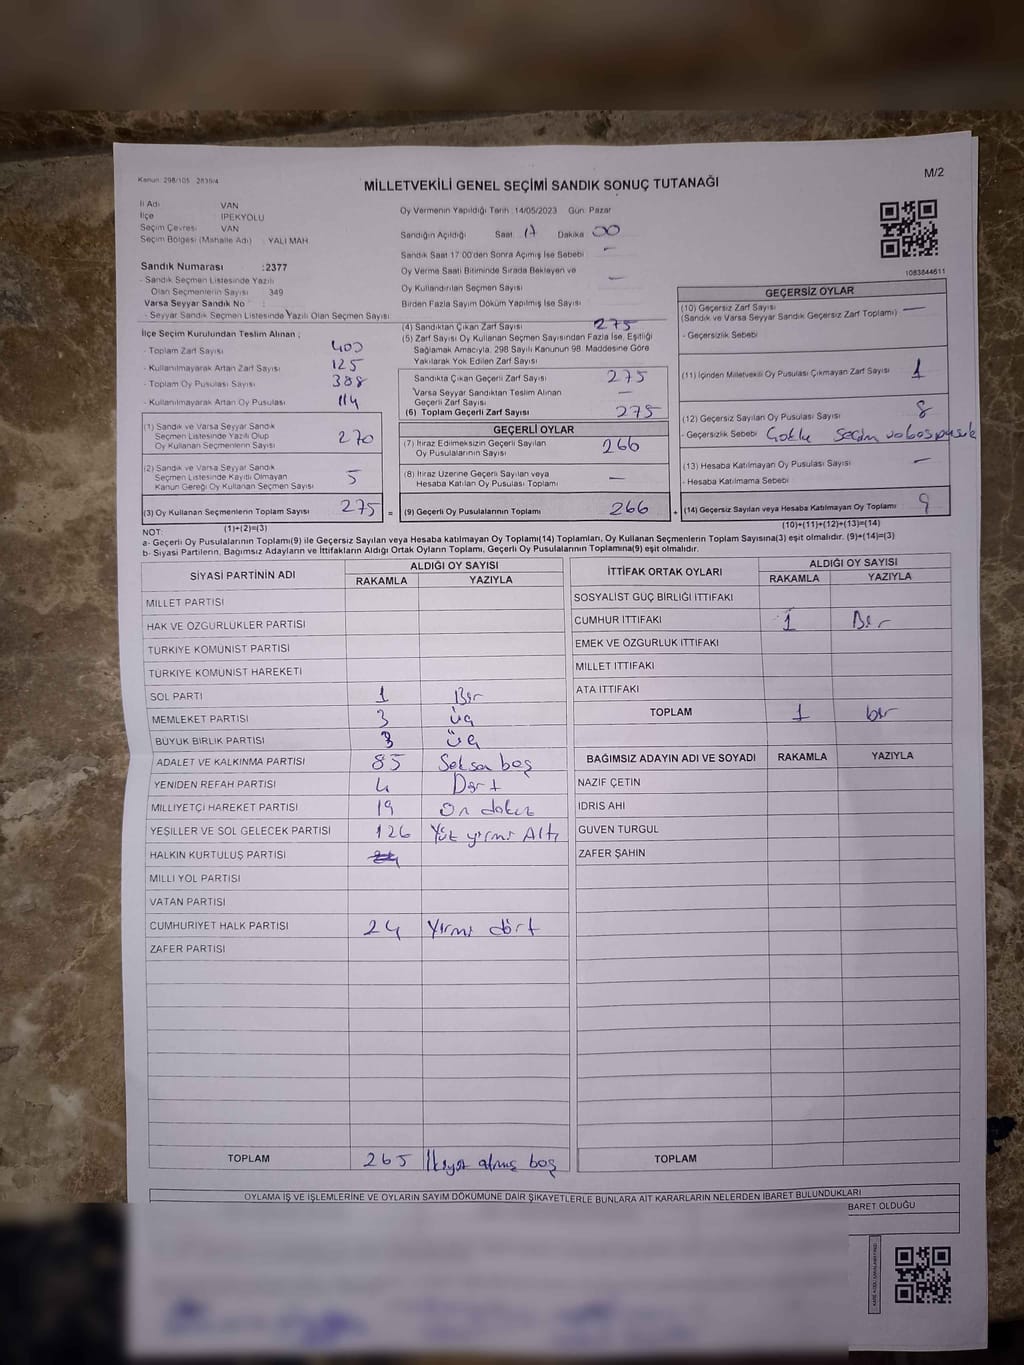 Kanun: 298/105 2839/4
MİLLETVEKİLİ GENEL SEÇİMİ SANDIK SONUÇ TUTANAĞI
M/2
İl Adı VAN
İlçe İPEKYOLU
Seçim Çevresi VAN
Seçim Bölgesi (Mahalle Adı) : YALI MAH.
Oy Vermenin Yapıldığı Tarih 14/05/2023 Gün: Pazar
Sandığın Açıldığı Saat 17 Dakika 00
Sandık Saat 17:00'den Sonra Açılmış İse Sebebi —
Oy Verme Saati Bitiminde Sırada Bekleyen ve
Oy Kullandırılan Seçmen Sayısı —
Birden Fazla Sayım Döküm Yapılmış İse Sayısı
1083844611
Sandık Numarası :2377
- Sandık Seçmen Listesinde Yazılı
Olan Seçmenlerin Sayısı 349
Varsa Seyyar Sandık No :
- Seyyar Sandık Seçmen Listesinde Yazılı Olan Seçmen Sayısı:
İlçe Seçim Kurulundan Teslim Alınan ;
- Toplam Zarf Sayısı 400
- Kullanılmayarak Artan Zarf Sayısı 125
- Toplam Oy Pusulası Sayısı 388
- Kullanılmayarak Artan Oy Pusulası 114
(1) Sandık ve Varsa Seyyar Sandık
Seçmen Listesinde Yazılı Olup
Oy Kullanan Seçmenlerin Sayısı 270
(2) Sandık ve Varsa Seyyar Sandık
Seçmen Listesinde Kayıtlı Olmayan
Kanun Gereği Oy Kullanan Seçmen Sayısı 5
(3) Oy Kullanan Seçmenlerin Toplam Sayısı 275 =
(1)+(2)=(3)
(4) Sandıktan Çıkan Zarf Sayısı 275
(5) Zarf Sayısı Oy Kullanan Seçmen Sayısından Fazla İse, Eşitliği
Sağlamak Amacıyla, 298 Sayılı Kanunun 98. Maddesine Göre
Yakılarak Yok Edilen Zarf Sayısı
Sandıkta Çıkan Geçerli Zarf Sayısı 275
Varsa Seyyar Sandıktan Teslim Alınan
Geçerli Zarf Sayısı —
(6) Toplam Geçerli Zarf Sayısı 275
GEÇERLİ OYLAR
(7) İtiraz Edilmeksizin Geçerli Sayılan
Oy Pusulalarının Sayısı 266
(8) İtiraz Üzerine Geçerli Sayılan veya
Hesaba Katılan Oy Pusulası Toplamı —
(9) Geçerli Oy Pusulalarının Toplamı 266 +
GEÇERSİZ OYLAR
(10) Geçersiz Zarf Sayısı —
(Sandık ve Varsa Seyyar Sandık Geçersiz Zarf Toplamı)
- Geçersizlik Sebebi :
(11) İçinden Milletvekili Oy Pusulası Çıkmayan Zarf Sayısı 1
(12) Geçersiz Sayılan Oy Pusulası Sayısı 8
- Geçersizlik Sebebi Çoklu seçim
(13) Hesaba Katılmayan Oy Pusulası Sayısı —
- Hesaba Katılmama Sebebi
(14) Geçersiz Sayılan veya Hesaba Katılmayan Oy Toplamı 9
(10)+(11)+(12)+(13)=(14)
NOT:
a- Geçerli Oy Pusulalarının Toplamı(9) ile Geçersiz Sayılan veya Hesaba Katılmayan Oy Toplamı(14) Toplamları, Oy Kullanan Seçmenlerin Toplam Sayısına(3) eşit olmalıdır. (9)+(14)=(3)
b- Siyasi Partilerin, Bağımsız Adayların ve İttifakların Aldığı Ortak Oyların Toplamı, Geçerli Oy Pusulalarının Toplamına(9) eşit olmalıdır.
SİYASİ PARTİNİN ADI ALDIĞI OY SAYISI
RAKAMLA YAZIYLA
MİLLET PARTİSİ
HAK VE ÖZGÜRLÜKLER PARTİSİ
TÜRKİYE KOMÜNİST PARTİSİ
TÜRKİYE KOMÜNİST HAREKETİ
SOL PARTİ 1 Bir
MEMLEKET PARTİSİ 3 üç
BÜYÜK BİRLİK PARTİSİ 3 üç
ADALET VE KALKINMA PARTİSİ 85 Seksen beş
YENİDEN REFAH PARTİSİ 4 Dört
MİLLİYETÇİ HAREKET PARTİSİ 19 On dokuz
YEŞİLLER VE SOL GELECEK PARTİSİ 126 Yüz yirmi Altı
HALKIN KURTULUŞ PARTİSİ
MİLLİ YOL PARTİSİ
VATAN PARTİSİ
CUMHURİYET HALK PARTİSİ 24 Yirmi dört
ZAFER PARTİSİ
TOPLAM 265 İkiyüz altmış beş
İTTİFAK ORTAK OYLARI ALDIĞI OY SAYISI
RAKAMLA YAZIYLA
SOSYALİST GÜÇ BİRLİĞİ İTTİFAKI
CUMHUR İTTİFAKI 1 Bir
EMEK VE ÖZGÜRLÜK İTTİFAKI
MİLLET İTTİFAKI
ATA İTTİFAKI
TOPLAM 1 bir
BAĞIMSIZ ADAYIN ADI VE SOYADI RAKAMLA YAZIYLA
NAZİF ÇETİN
İDRİS AHİ
GÜVEN TURGUL
ZAFER ŞAHİN
TOPLAM
OYLAMA İŞ VE İŞLEMLERİNE VE OYLARIN SAYIM DÖKÜMÜNE DAİR ŞİKAYETLERLE BUNLARA AİT KARARLARIN NELERDEN İBARET BULUNDUKLARI
BARET OLDUĞU